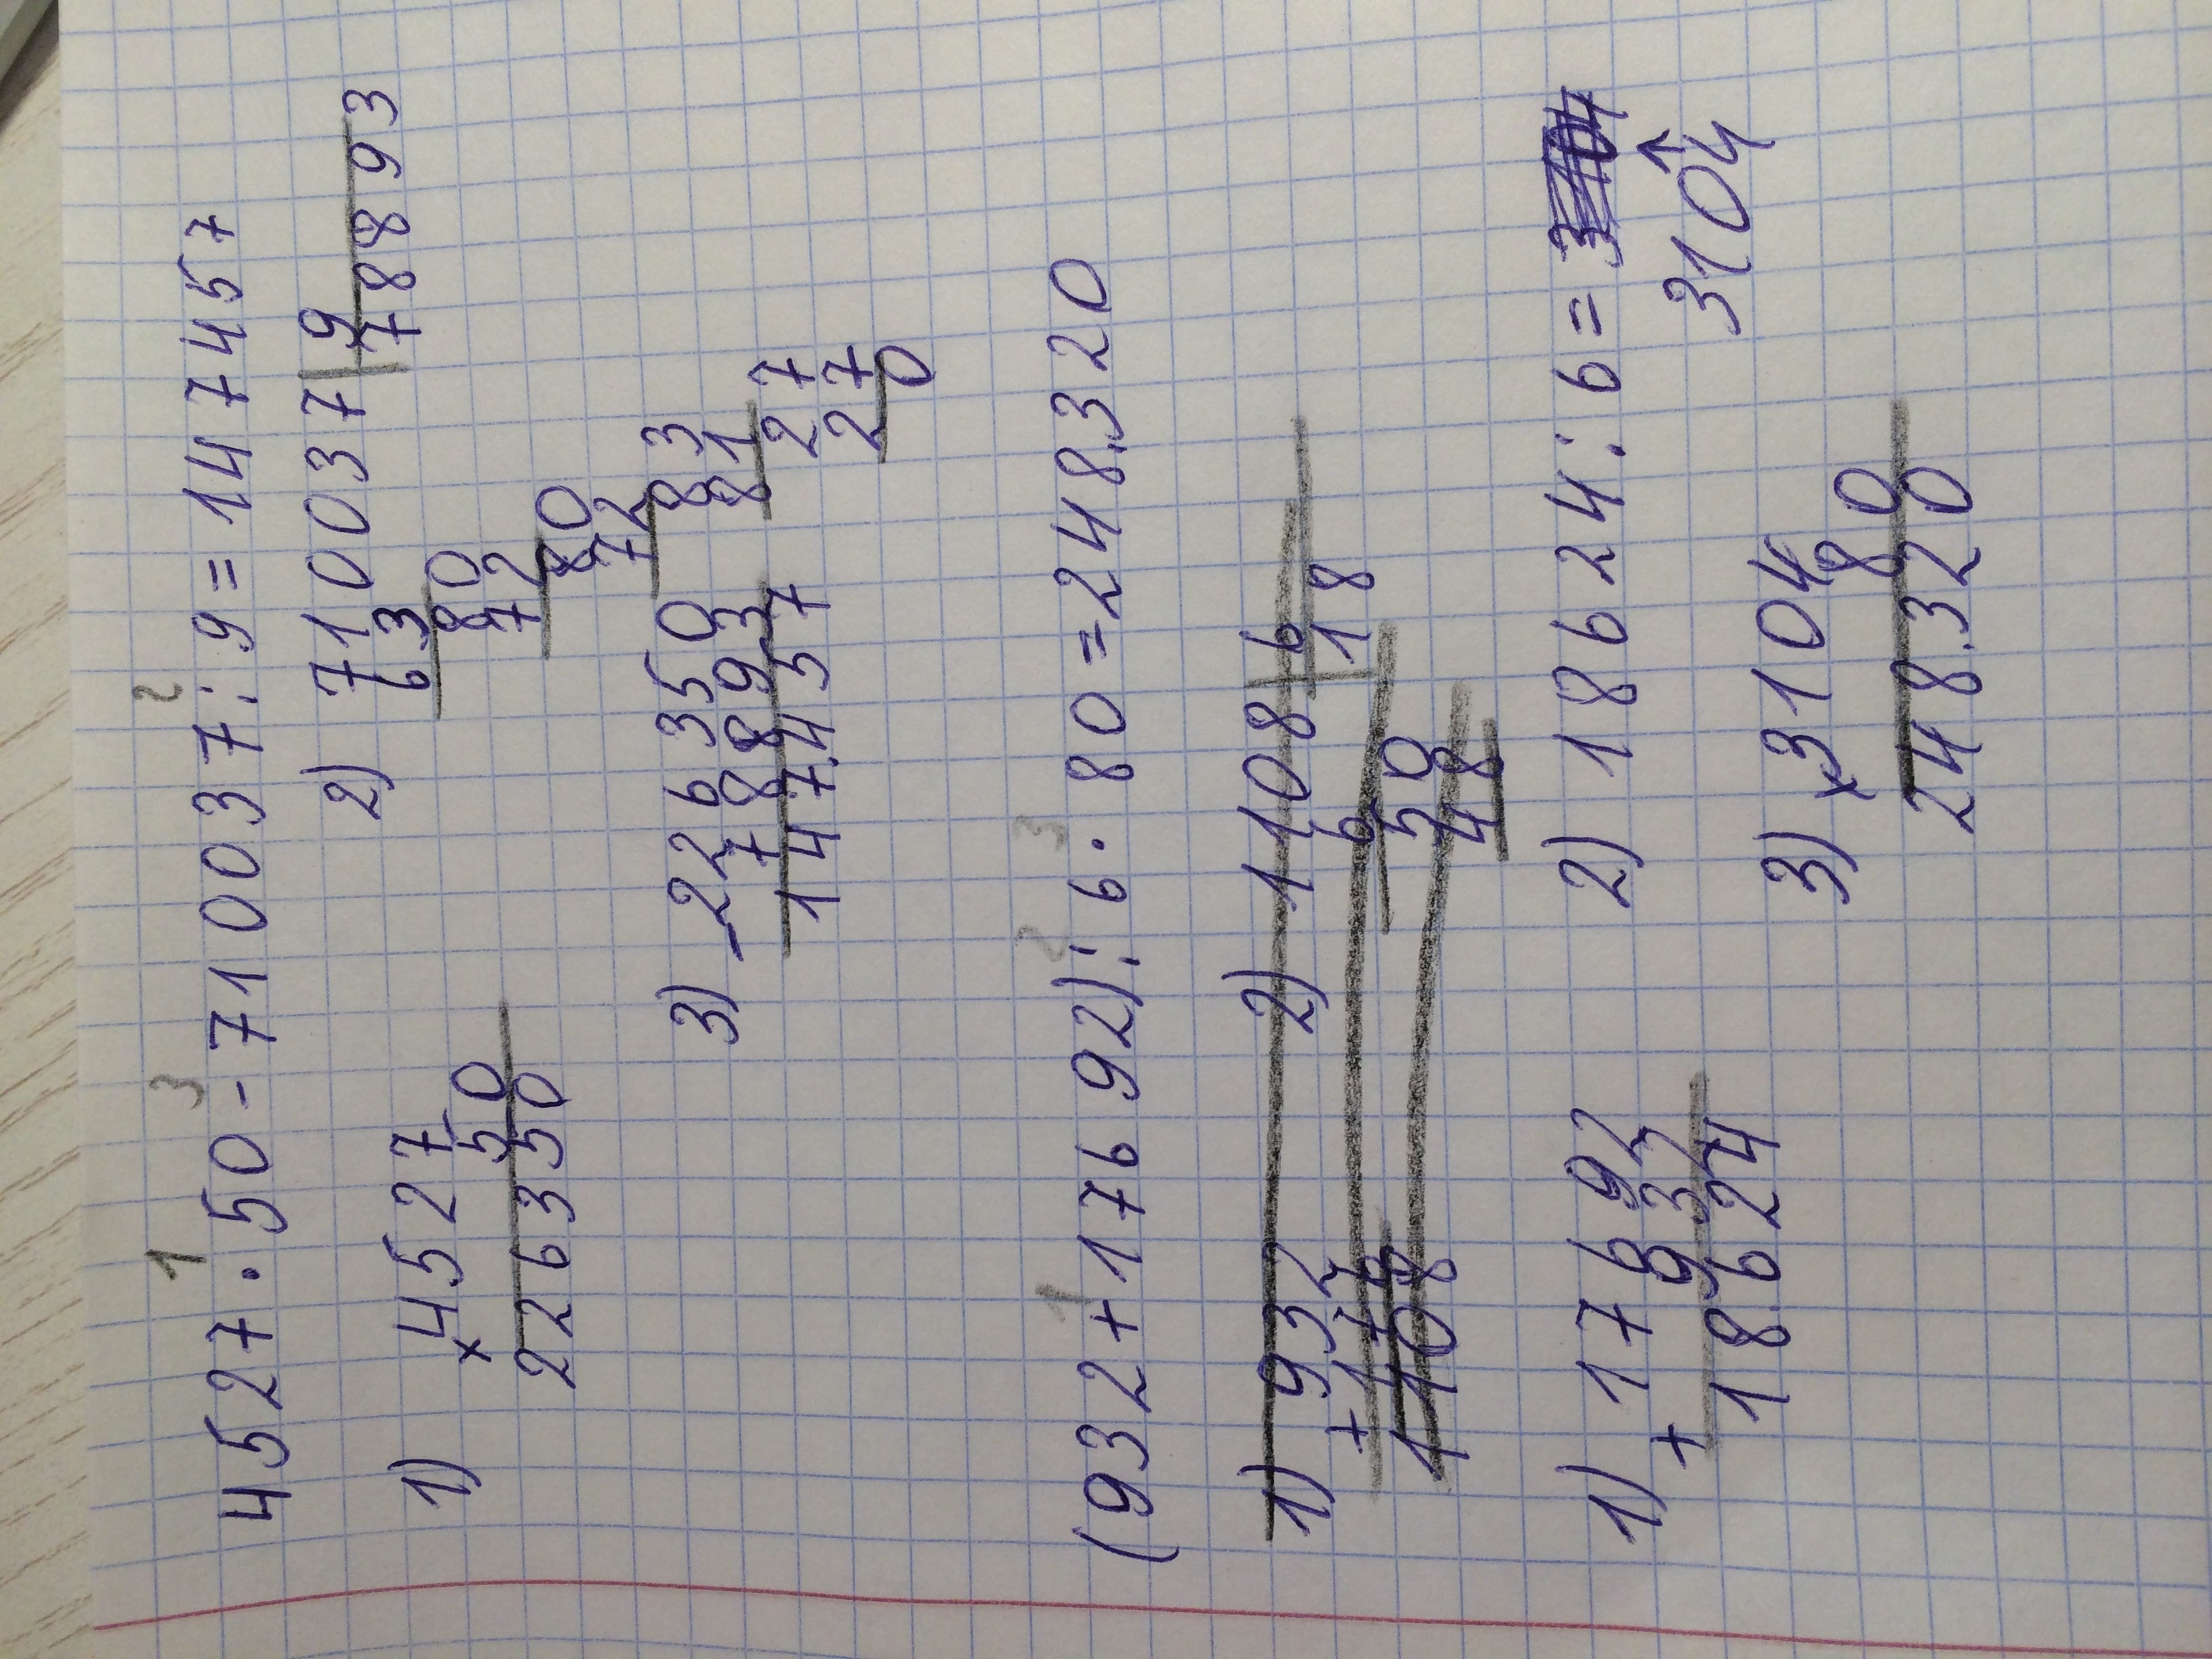 1 3 2
4527 · 50 - 710037 : 9 = 147457
1) × 4527
50
226350
2) 710037 | 9
63 78893
80
72
80
72
83
81
27
27
0
3) - 226350
78893
147457
1 2 3
(932 + 17692) : 6 · 80 = 248.320
1) 932
+
1108
2) 1108 | 6
6 18
50
48
1) 17692
+ 932
18.624
2) 18624 : 6 =
3104
3) × 3104
80
248.320